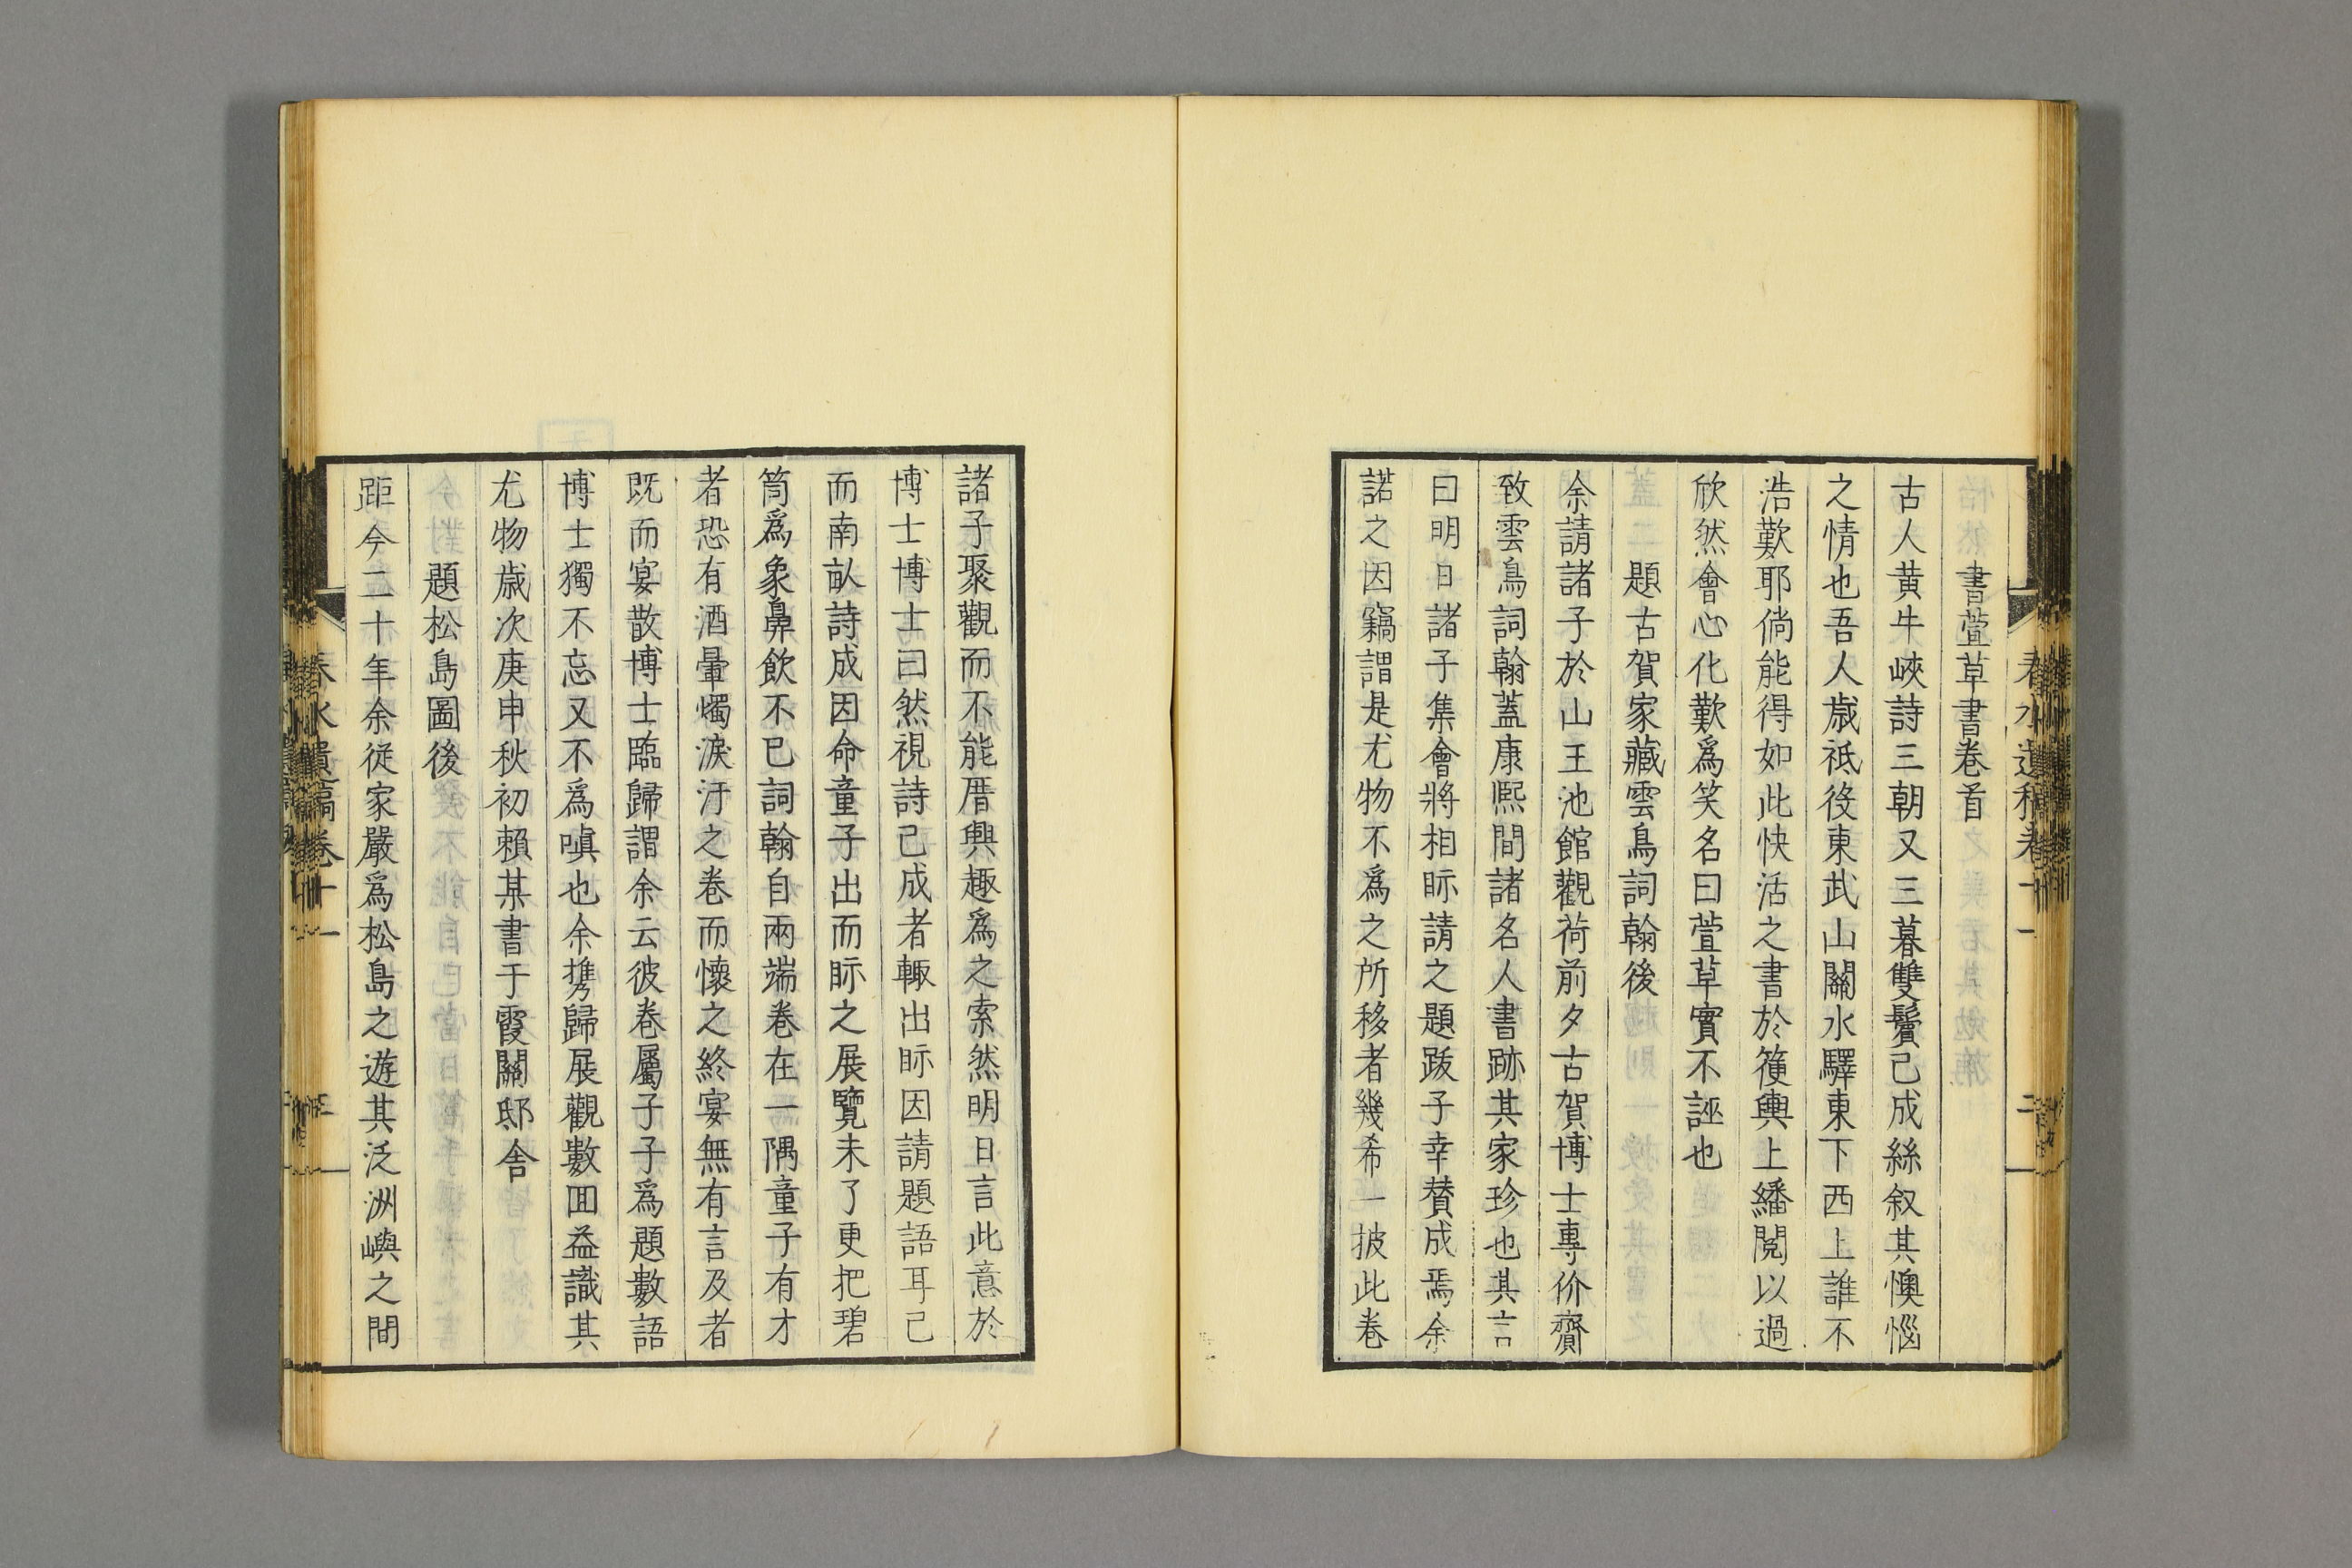 書萱草書卷首
古人黄牛峽詩三朝又三暮雙鬢已成絲叙其懊惱
之情也吾人歳祗役東武山關水驛東下西上誰不
浩歎耶倘能得如此快活之書於篗輿上繙閲以過
欣然會心化歎爲笑名曰萱草實不誣也
題古賀家藏雲鳥詞翰後
余請諸子於山王池館觀荷前夕古賀博士專价齎
致雲鳥詞翰蓋康熙間諸名人書跡其家珍也其言
曰明日諸子集會將相眎請之題跋子幸賛成焉余
諾之因竊謂是尤物不爲之所移者幾希一披此卷
諸子聚觀而不能厝輿趣爲之索然明日言此意於
博士博士曰然視詩已成者輙出眎因請題語耳已
而南畝詩成因命童子出而眎之展覽未了更把碧
筒爲象鼻飲不已詞翰自兩端卷在一隅童子有才
者恐有酒暈燭淚汙之卷而懷之終宴無有言及者
既而宴散博士臨歸謂余云彼卷屬子子爲題數語
博士獨不忘又不爲嗔也余携歸展觀數回益識其
尤物歳次庚申秋初賴某書于霞關邸舎
題松島圖後
距今二十年余從家嚴爲松島之遊其泛洲嶼之間
春水遺稿卷十一
三